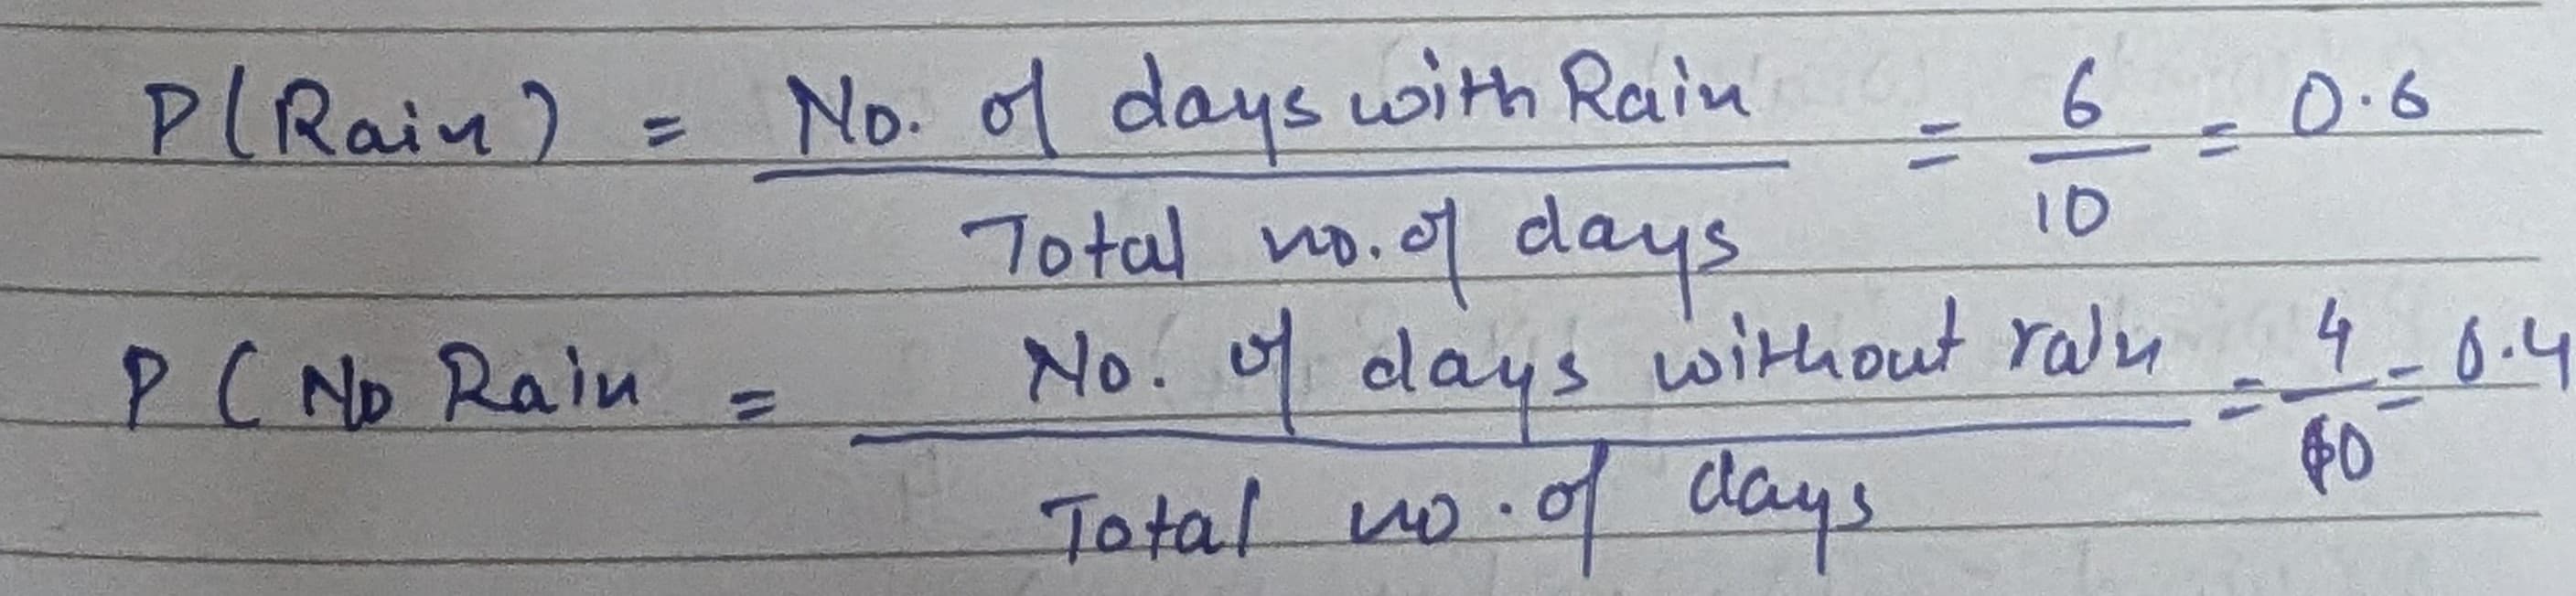 P(Rain) = No. of days with Rain / Total no. of days = 6/10 = 0.6
P(No Rain = No. of days without rain / Total no. of days = 4/10 = 0.4